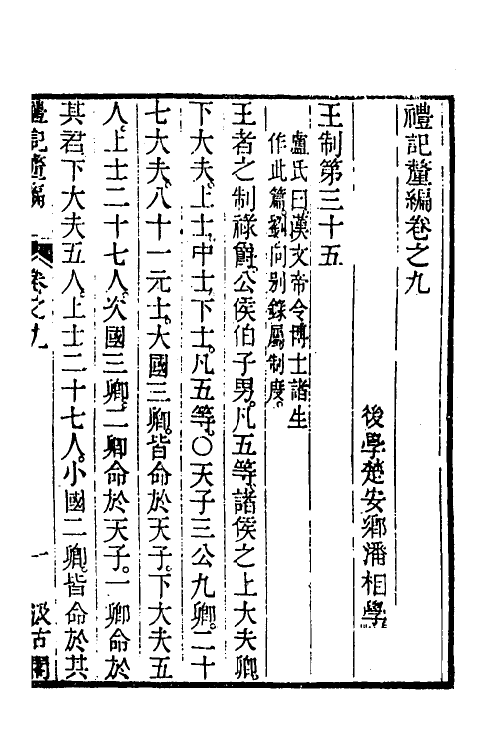 禮記釐編卷之九
後學楚安鄉潘相學
王制第三十五
盧氏曰漢文帝令博士諸生
作此篇劉向别錄屬制度。
王者之制祿爵。公侯伯子男。凡五等。諸侯之上大夫卿。
下大夫。上士。中士。下士。凡五等。○天子三公九卿。二十
七大夫。八十一元士。大國三卿。皆命於天子。下大夫五
人。上士二十七人。次國三卿。二卿命於天子。一卿命於
其君。下大夫五人。上士二十七人。小國二卿。皆命於其
禮記釐編
卷之九
一
汲古閣